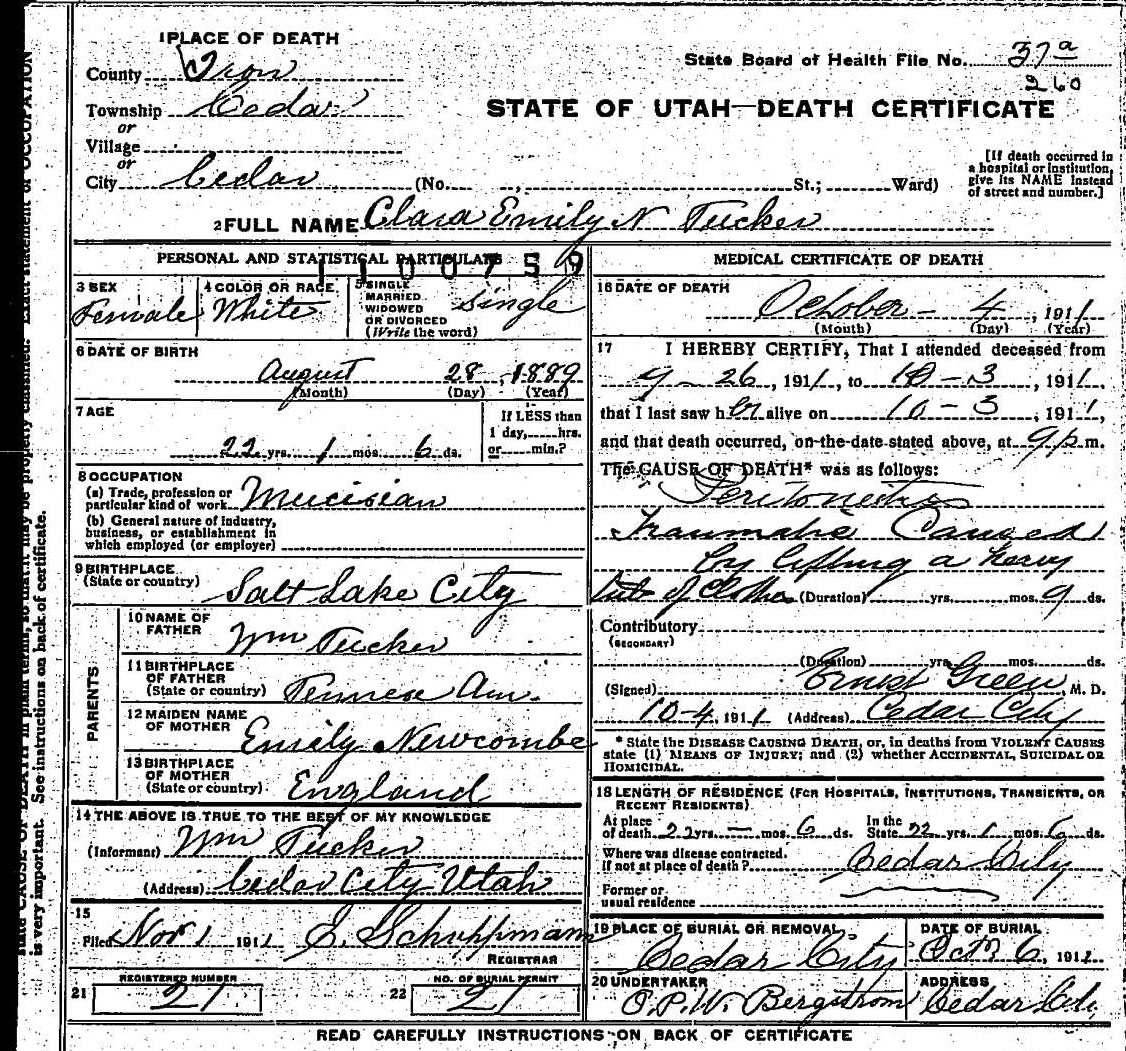 1 PLACE OF DEATH
County Iron
State Board of Health File No. 37 a
260
Township Cedar
or
STATE OF UTAH—DEATH CERTIFICATE
Village
or
City Cedar (No. , St.; Ward)
[If death occurred in a hospital or institution, give its NAME instead of street and number.]
2 FULL NAME Clara Emily N Tucker
PERSONAL AND STATISTICAL PARTICULARS
1100759
3 SEX
Female
4 COLOR OR RACE
White
5 SINGLE
MARRIED
WIDOWED
OR DIVORCED
(Write the word)
Single
6 DATE OF BIRTH
August 28, 1889
(Month) (Day) (Year)
7 AGE
22 yrs. 1 mos. 6 ds.
If LESS than
1 day, hrs.
or min.?
8 OCCUPATION
(a) Trade, profession or
particular kind of work Mucisian
(b) General nature of industry,
business, or establishment in
which employed (or employer)
9 BIRTHPLACE
(State or country)
Salt Lake City
PARENTS
10 NAME OF
FATHER
Wm Tucker
11 BIRTHPLACE
OF FATHER
(State or country) Tennese Am.
12 MAIDEN NAME
OF MOTHER
Emily Newcombe
13 BIRTHPLACE
OF MOTHER
(State or country) England
14 THE ABOVE IS TRUE TO THE BEST OF MY KNOWLEDGE
(Informant) Wm Tucker
(Address) Cedar City Utah
15
Filed Nov 1 1911 E. Schuppmann
REGISTRAR
REGISTERED NUMBER
21 21
NO. OF BURIAL PERMIT
22 21
MEDICAL CERTIFICATE OF DEATH
16 DATE OF DEATH
October - 4, 1911
(Month) (Day) (Year)
17 I HEREBY CERTIFY, That I attended deceased from
9 - 26, 1911, to 10 - 3, 1911,
that I last saw her alive on 10 - 3, 1911,
and that death occurred, on the date stated above, at 9 p m.
The CAUSE OF DEATH* was as follows:
Peritonitis
Traumatic Caused
by lifting a heavy
tub of Clothes (Duration) yrs. mos. 9 ds.
Contributory
(SECONDARY)
(Duration) yrs. mos. ds.
(Signed) Ernest Green, M. D.
10-4, 1911 (Address) Cedar City
* State the DISEASE CAUSING DEATH, or, in deaths from VIOLENT CAUSES
state (1) MEANS OF INJURY; and (2) whether ACCIDENTAL, SUICIDAL OR
HOMICIDAL.
18 LENGTH OF RESIDENCE (FOR HOSPITALS, INSTITUTIONS, TRANSIENTS, OR
RECENT RESIDENTS)
At place
of death 22 yrs. — mos. 6 ds.
In the
State 22 yrs. 1 mos. 6 ds.
Where was disease contracted,
if not at place of death? Cedar City
Former or
usual residence
19 PLACE OF BURIAL OR REMOVAL
Cedar City
DATE OF BURIAL
Oct 6, 1911
20 UNDERTAKER
O. P. W. Bergstrom
ADDRESS
Cedar City
READ CAREFULLY INSTRUCTIONS ON BACK OF CERTIFICATE
is very important. See instructions on back of certificate.